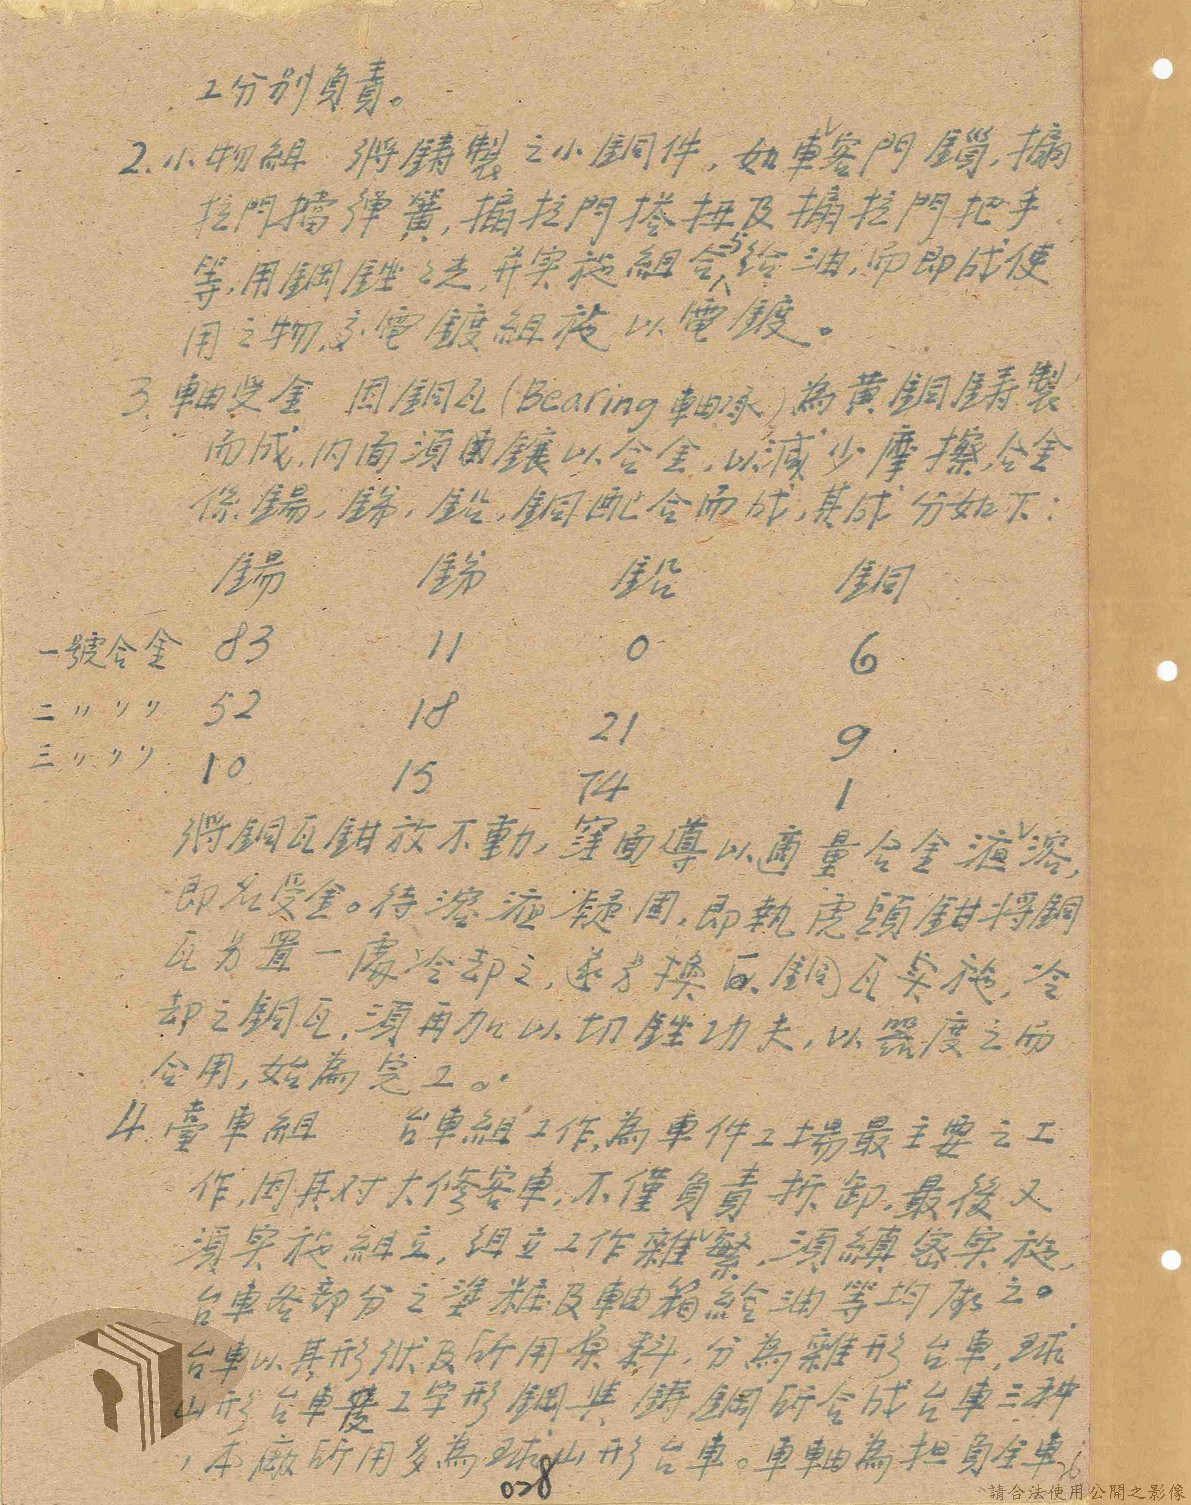 工分别負責。
2. 小物組 將鑄製之小銅件，如車客門鎖，搧
拉門擋弹簧，搧拉門搭扭及搧拉門把手
等，用鋼銼之走，并实施組合与給油，而即成使
用之物，交電鍍組施以電鍍。
3. 軸受金 因銅瓦(Bearing軸承)為黄銅鋳製
而成，内面須鑲以合金，以減少摩擦，合金
係錫，銻，鉛，銅配合而成，其成分如下：
錫 銻 鉛 銅
一號合金 83 11 0 6
二 〃 〃 〃 52 18 21 9
三 〃 〃 〃 10 15 74 1
將銅瓦鉗放不動，窪面導以適量合金液溶，
即名受金。待溶液凝固，即執虎頭鉗将銅
瓦另置一處冷却之，遂另換瓦銅瓦实施，冷
却之銅瓦，須再加以切銼功夫，以器度之而
合用，始為完工。
4. 臺車組 台車組工作，為車件工場最主要之工
作，因其对大修客車，不僅負責拆卸，最後又
須实施組立，組立工作雜繁，須縝密实施，
台車各部分之塗粧及軸箱給油等均屬之。
台車以其形狀及所用原料，分為離形台車，球
山形台車暨工字形鋼與鋳鋼所合成台車三种
，本廠所用多為球山形台車。車軸為担負全車
028
26
請合法使用公開之影像